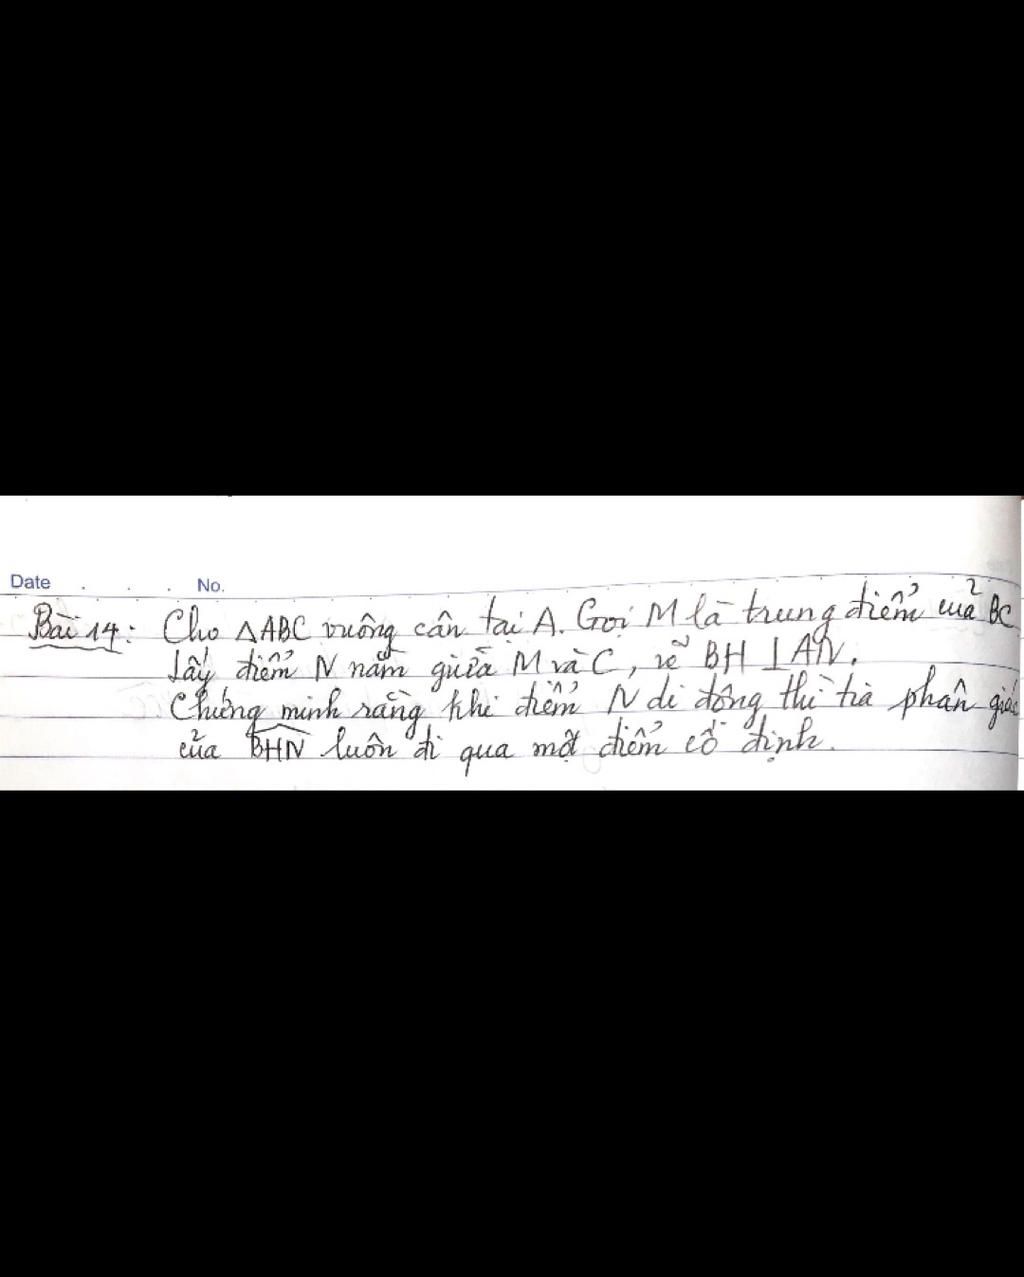 Date . . . No.
Bài 14: Cho ΔABC vuông cân tại A. Gọi M là trung điểm của BC
Lấy điểm N nằm giữa M và C, vẽ BH ⊥ AN.
Chứng minh rằng khi điểm N di động thì tia phân giác
của BHN luôn đi qua một điểm cố định.